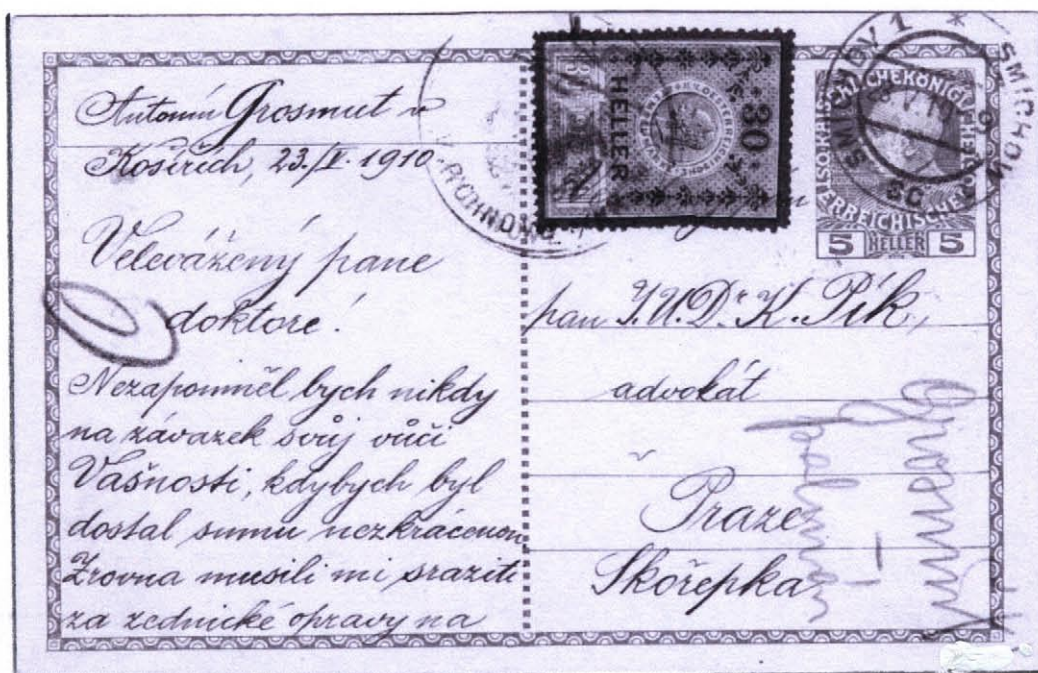 Antonín Grosmut v
Košířích, 23./V. 1910.
Velevážený pane
doktore!
Nezapomněl bych nikdy
na závazek svůj vůči
Vašnosti, kdybych byl
dostal sumu nezkrácenou
Zrovna musili mi sraziti
za zednické opravy na
30
HELLER
SMICHOV 1 * SMICHOV
5 HELLER 5
pan J.U.Dr. K. Pik,
advokát
Praze
Skořepka